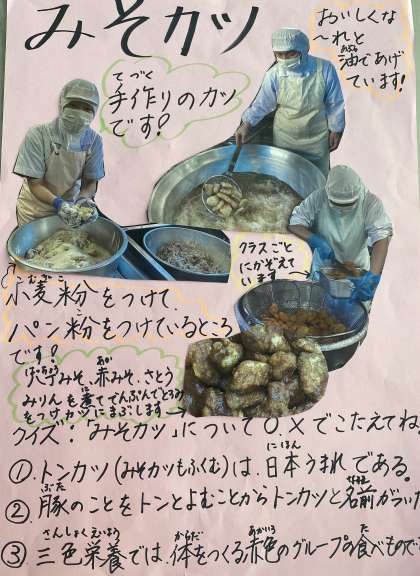 みそカツ
おいしくな
〜れと
油であげ
ています!
あぶら
てづく
手作りのカツ
です!
クラスごと
にかぞえて
います
こむぎこ
小麦粉をつけて、
パン粉をつけているところ
です!
はっちょう あか
八丁みそ、赤みそ、さとう
みりんを煮てでんぷんでとろみ
をつけカツにまぶします
クイズ:「みそカツ」について○、×でこたえてね
にほん
①.トンカツ(みそカツもふくむ)は、日本うまれである。
ぶた なまえ
②.豚のことをトンとよむことからトンカツと名前がつい
さんしょくえいよう からだ あかいろ た
③.三色栄養では、体をつくる赤色のグループの食べもので